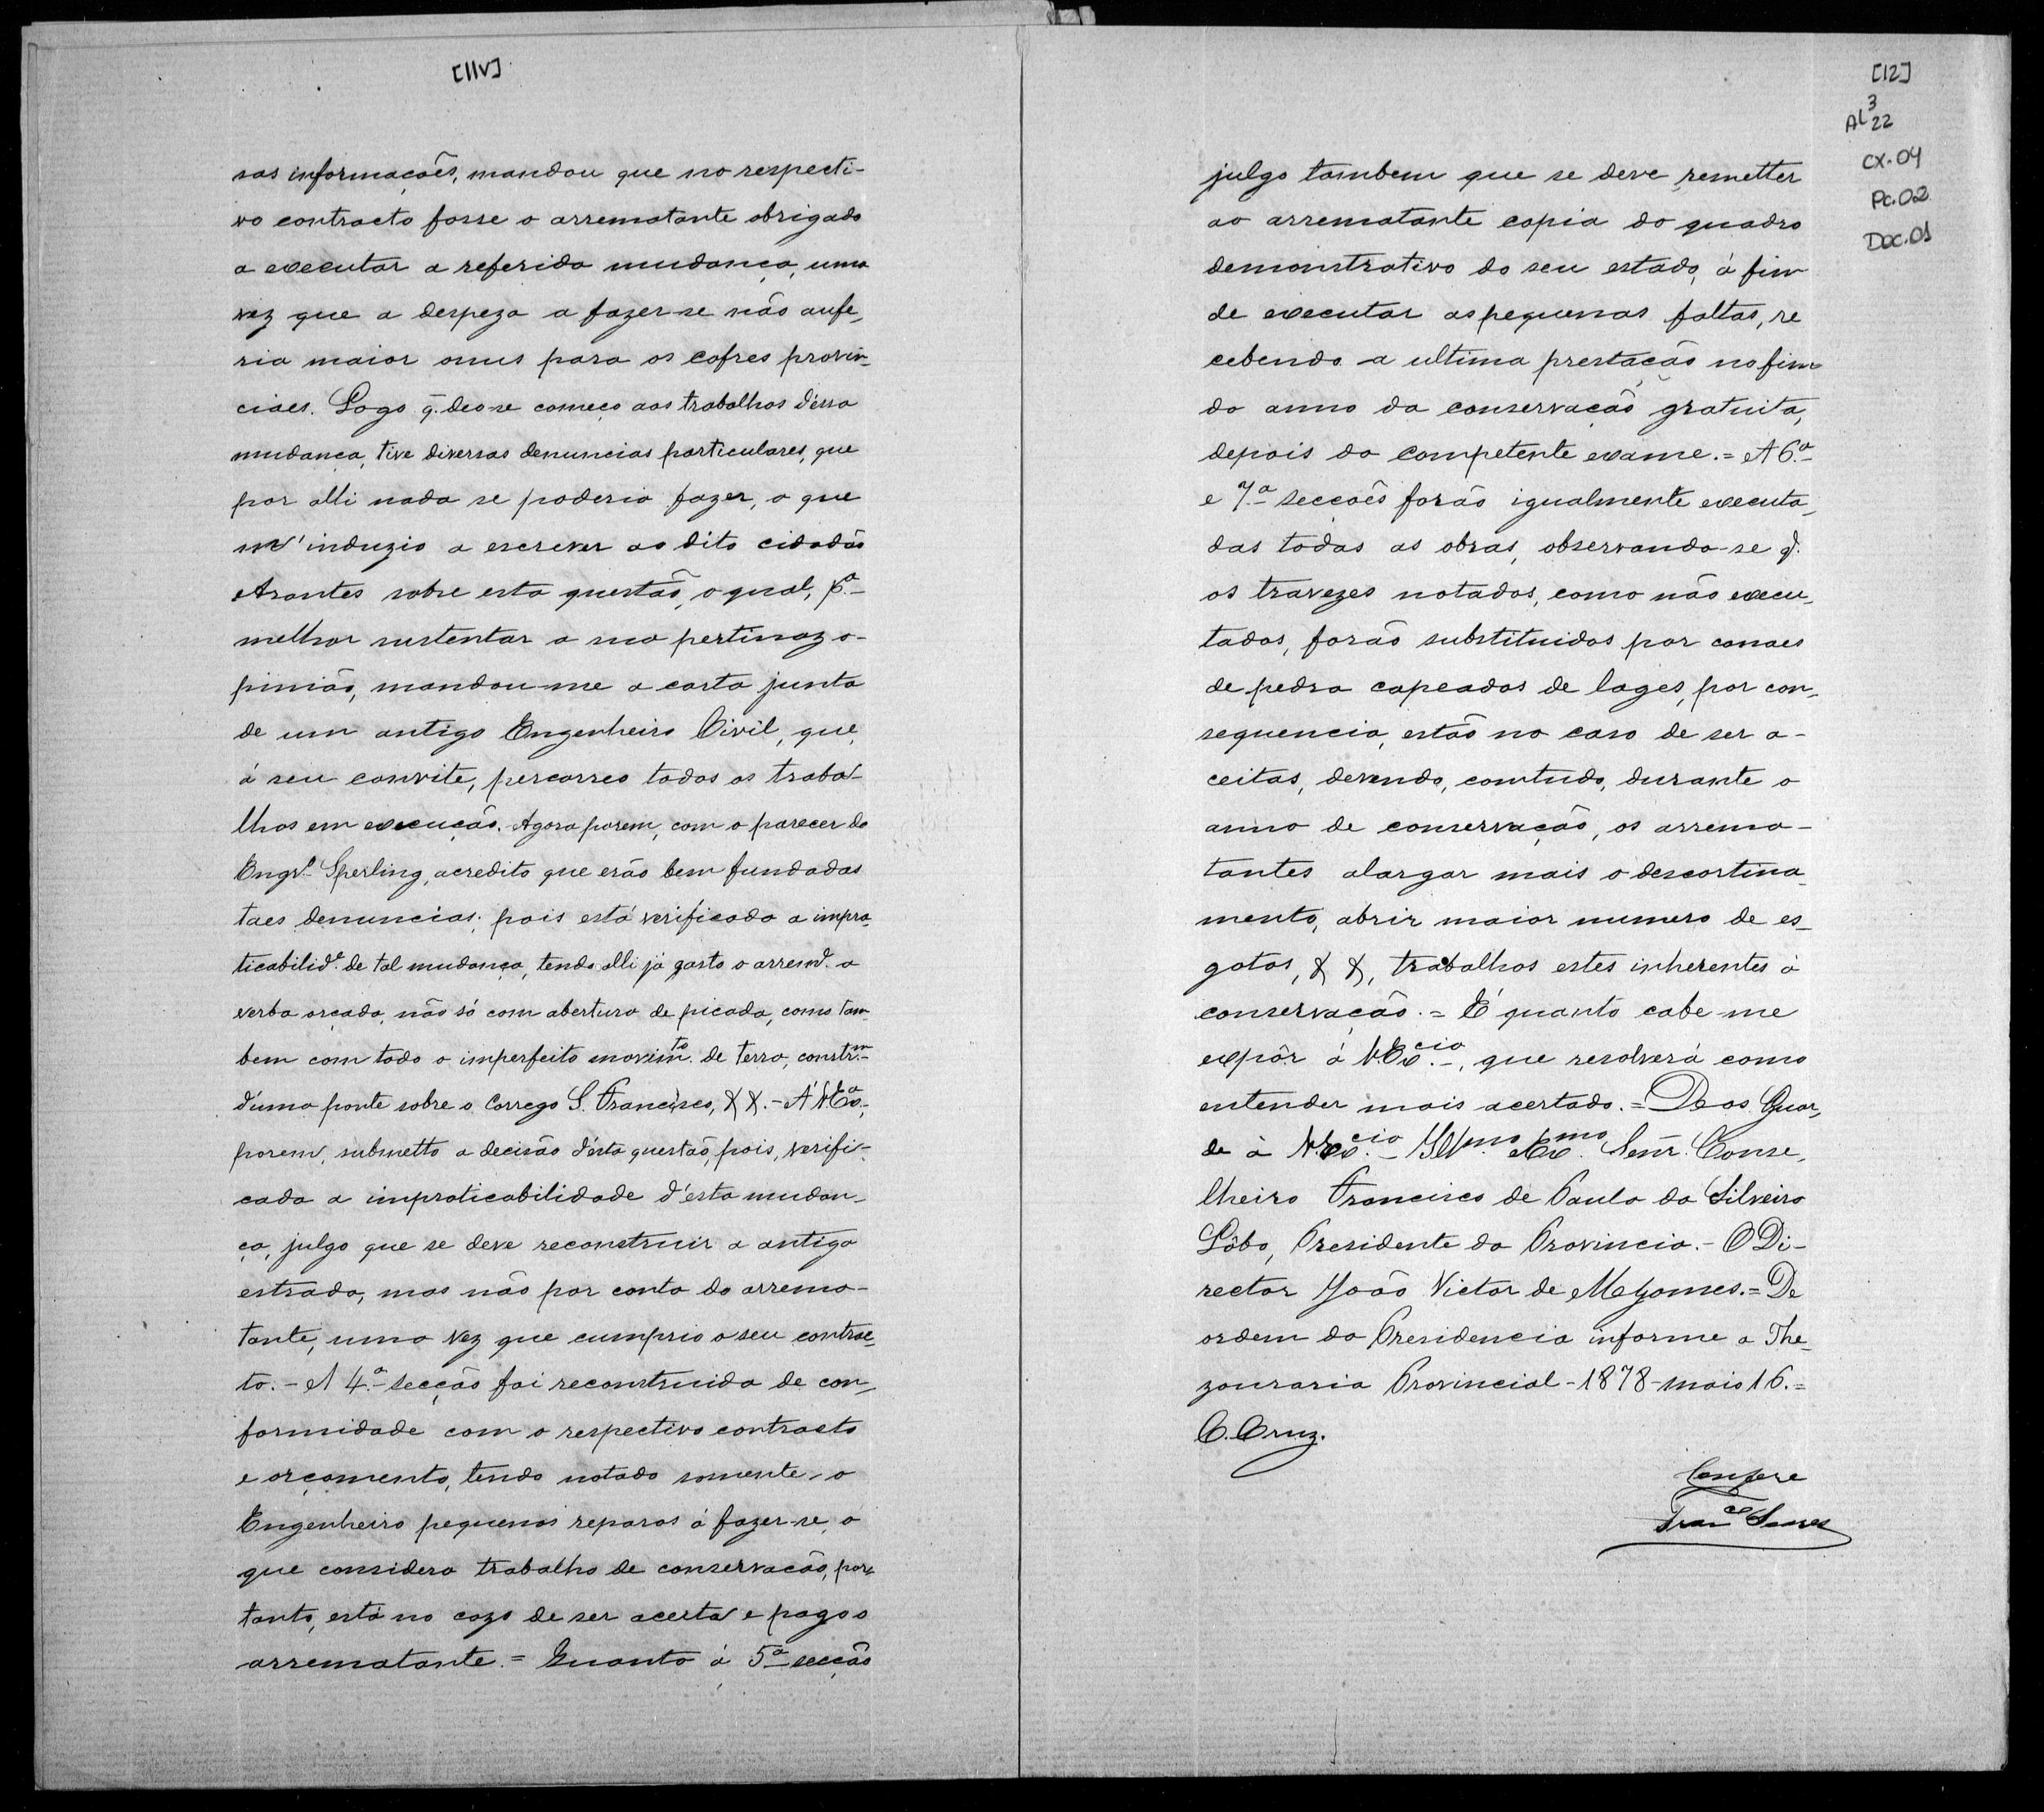 [11v]
sas informaçoês, mandou que no respecti-
vo contracto fosse o arrematante obrigado
a executar a referida mudança, uma
vez que a despeza a fazer-se não aufe-
ria maior onus para os cofres provin-
ciaes. Logo q̃. deo-se começo aos trabalhos d'essa
mudança, tive diversas denuncias particulares, que
por alli nada se poderia fazer, o que
me induzio a escrever ao dito cidadão
Arantes sobre esta questão, o qual, p.ª
melhor sustentar a sua pertinaz o-
pinião, mandou-me a carta junta
de um antigo Engenheiro Civil, que,
á seu convite, percorreo todos os traba-
lhos em execução. Agora porem, com o parecer do
Engr.º Sperling, acredito que erão bem fundadas
taes denuncias; pois está verificada a impra-
ticabilid.e de tal mudança, tendo alli já gasto o arremd.e a
verba orçada, não só com abertura de picada, como tam-
bem com todo o imperfeito movim.to de terra, constr.m
d'uma ponte sobre o Corrego S. Francisco, & &. - Á V.Ex.ª,
porem, submetto a decisão d'esta questão, pois, verifi-
cada a impraticabilidade d'esta mudan-
ça, julgo que se deve reconstruir a antiga
estrada, mas não por conta do arrema-
tante, uma vez que cumprio o seu contrac-
to. - A 4.ª secção foi reconstruida de con-
formidade com o respectivo contracto
e orçamento, tendo notado somente o
Engenheiro pequenos reparos á fazer-se, o
que considero trabalho de conservacão, por-
tanto, está no cazo de ser aceita e pago o
arrematante. = Quanto á 5ª secção
[12]
AL 3 22
CX.04
Pc.02
Doc.01
julgo tambem que se deve remetter
ao arrematante copia do quadro
demonstrativo do seu estado, á fim
de executar as pequenas faltas, re
cebendo a ultima prestação no fim
do anno da conservação gratuita,
depois do competente exame. = A 6.ª
e 7.ª secçoês forão igualmente executa-
das todas as obras, observando-se q̃.
os travezes notados, como não execu-
tados, forão substituidos por canaes
de pedra capeados de lages, por con-
sequencia, estão no caso de ser a-
ceitas, devendo, comtudo, durante o
anno de conservação, os arrema-
tantes alargar mais o descortina-
mento, abrir maior numero de es-
gotos, & &, trabalhos estes inherentes á
conservação. = É quanto cabe-me
expôr á V.Ex.cia, que resolverá como
entender mais acertado. = Deos Guar-
de á V.Ex.cia - Ill.mo Ex.mo Senr. Conse-
lheiro Francisco de Paula da Silveira
Lôbo, Presidente da Provincia. - O Di-
rector João Victor de M Gomes. = De
ordem da Presidencia informe a The-
zouraria Provincial - 1878 - maio 16. =
C. Cruz.
Confere
Fran.co